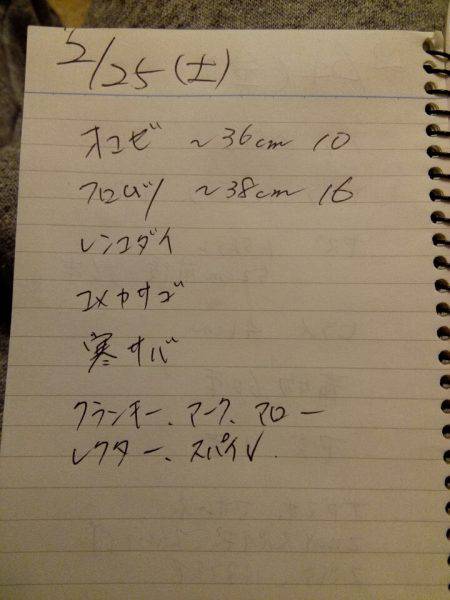 2/25(土)
オコゼ ～36cm 10
クロムツ ～38cm 16
レンコダイ
ユメカサゴ
寒サバ
クランキー、マーク、アロー
レクター、スパイV